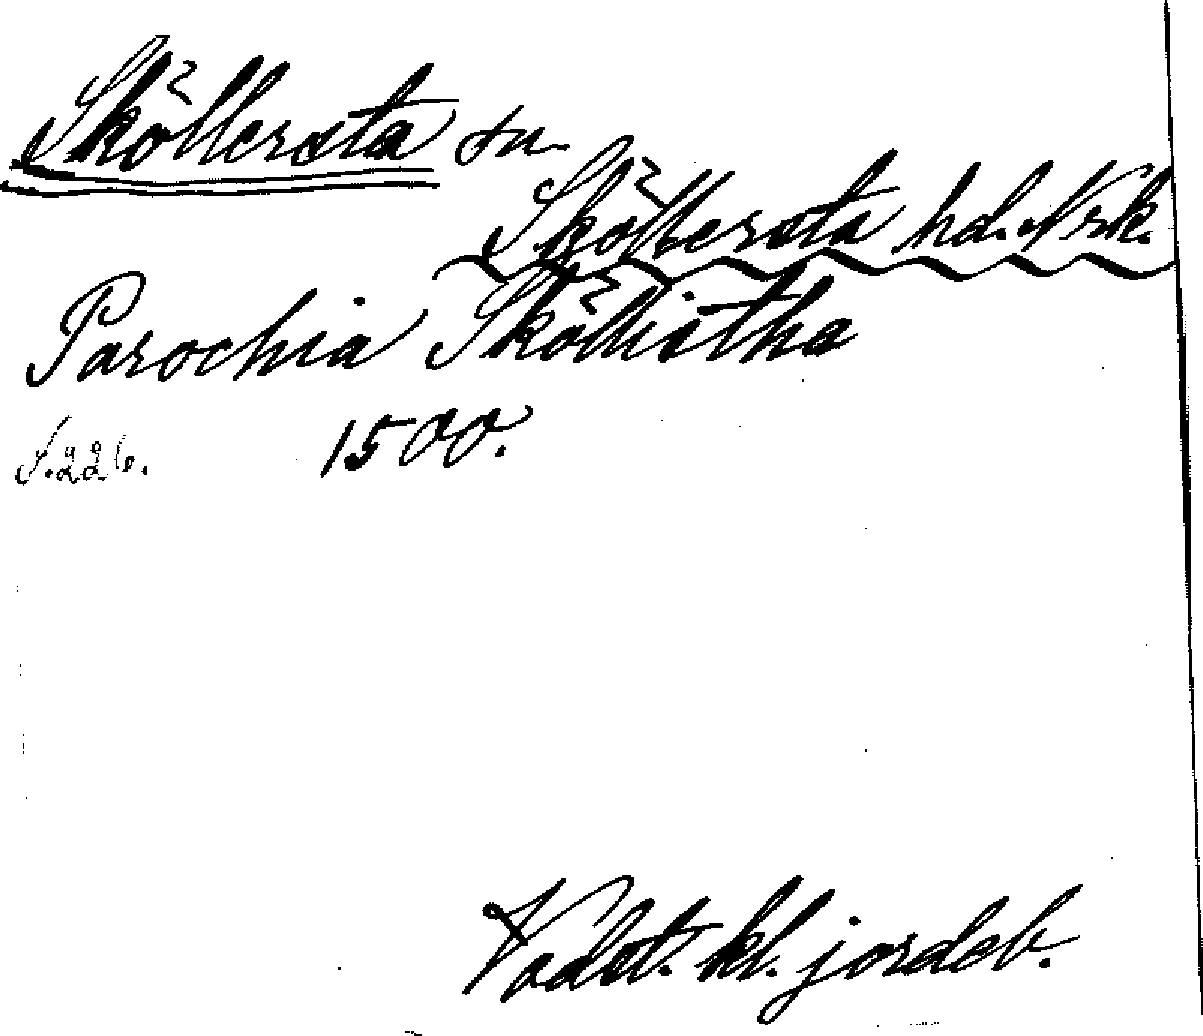 Sköllersta sn
Sköllersta hd. Nrk.
Parochia Sköllistha
S. 226. 1500.
Vadst. kl. jordeb.